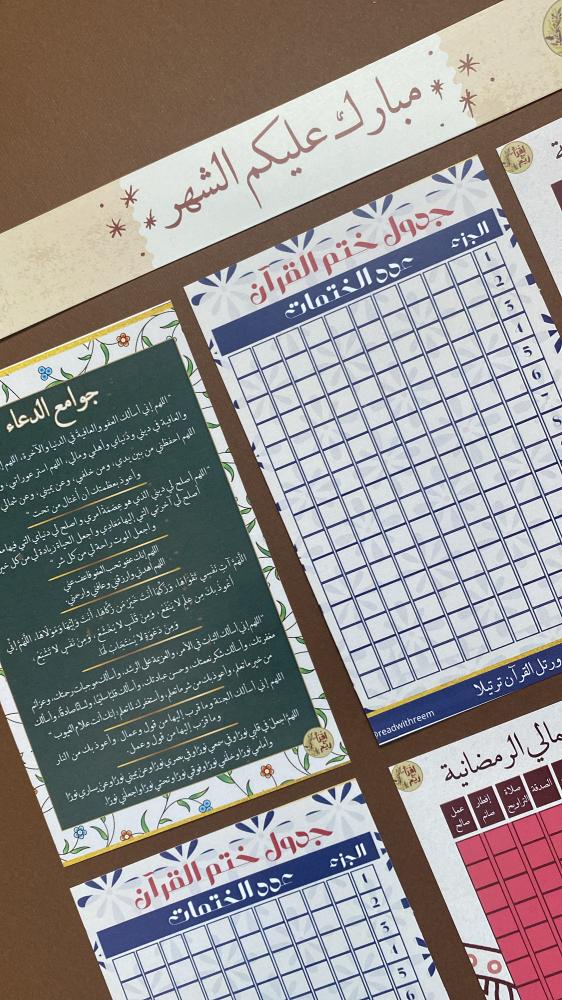 مبارك عليكم الشهر
جدول ختم القرآن
الجزء
عدد الختمات
1
2
3
4
5
6
7
8
ورتل القرآن ترتيلا
@readwithreem
جوامع الدعاء
"اللهم إني أسألك العفو والعافية في الدنيا والآخرة، اللهم
والعافية في ديني ودنياي وأهلي ومالي، اللهم استر عوراتي
اللهم احفظني من بين يدي، ومن خلفي، وعن يميني، وعن شمالي
وأعوذ بعظمتك أن أغتال من تحتي"
"اللهم أصلح لي ديني الذي هو عصمة أمري وأصلح لي دنياي التي فيها
أصلح لي آخرتي التي إليها معادي واجعل الحياة زيادة لي من كل خير
واجعل الموت راحة لي من كل شر
اللهم إنك عفو تحب العفو فاعف عني
اللهم اهدني وارزقني وعافني وارحمني
اللهم آت نفسي تقواها، وزكها أنت خير من زكاها، أنت وليها ومولاها، اللهم إني
أعوذ بك من علم لا ينفع، ومن قلب لا يخشع، ومن نفس لا تشبع،
ومن دعوة لا يستجاب لها
"اللهم إني أسألك الثبات في الأمر، والعزيمة على الرشد، وأسألك موجبات رحمتك، وعزائم
مغفرتك، وأسألك شكر نعمتك، وحسن عبادتك، وأسألك قلبا سليما، ولسانا صادقا، وأسألك
من خير ما تعلم، وأعوذ بك من شر ما تعلم، وأستغفرك لما تعلم، إنك أنت علام الغيوب"
اللهم إني أسألك الجنة وما قرب إليها من قول وعمل وأعوذ بك من النار
وما قرب إليها من قول وعمل
اللهم اجعل في قلبي نورا وفي سمعي نورا وفي بصري نورا وعن يميني نورا وعن يساري نورا
وأمامي نورا وخلفي نورا وفوقي نورا وتحتي نورا واجعلني نورا
جدول ختم القرآن
الجزء
عدد الختمات
1
2
3
4
5
6
الرمضانية
الصدقة
صلاة التراويح
إفطار صائم
عمل صالح